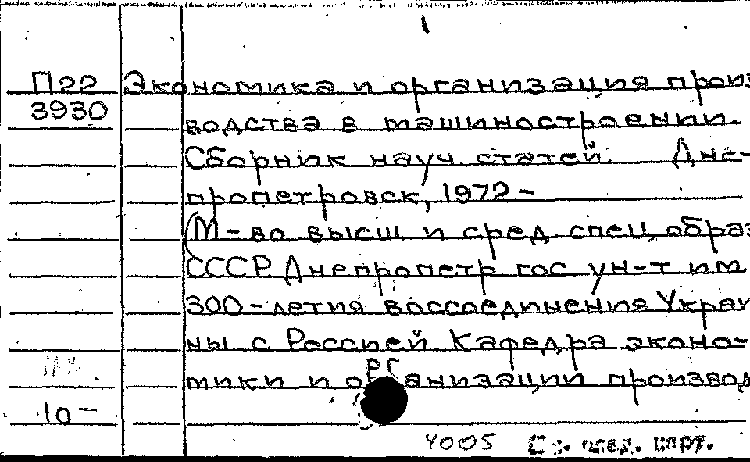 1
П22 Экономика и организация произ
3930 водства в машиностроении.
Сборник науч. статей. Дне-
пропетровск, 1972 -
(М-во высш и сред. спец. образ
СССР Днепропетр гос ун-т им
300-летия воссоединения Украи
ны с Россией Кафедра эконо-
мики и организации производ
10 -
4005 См. след. карт.